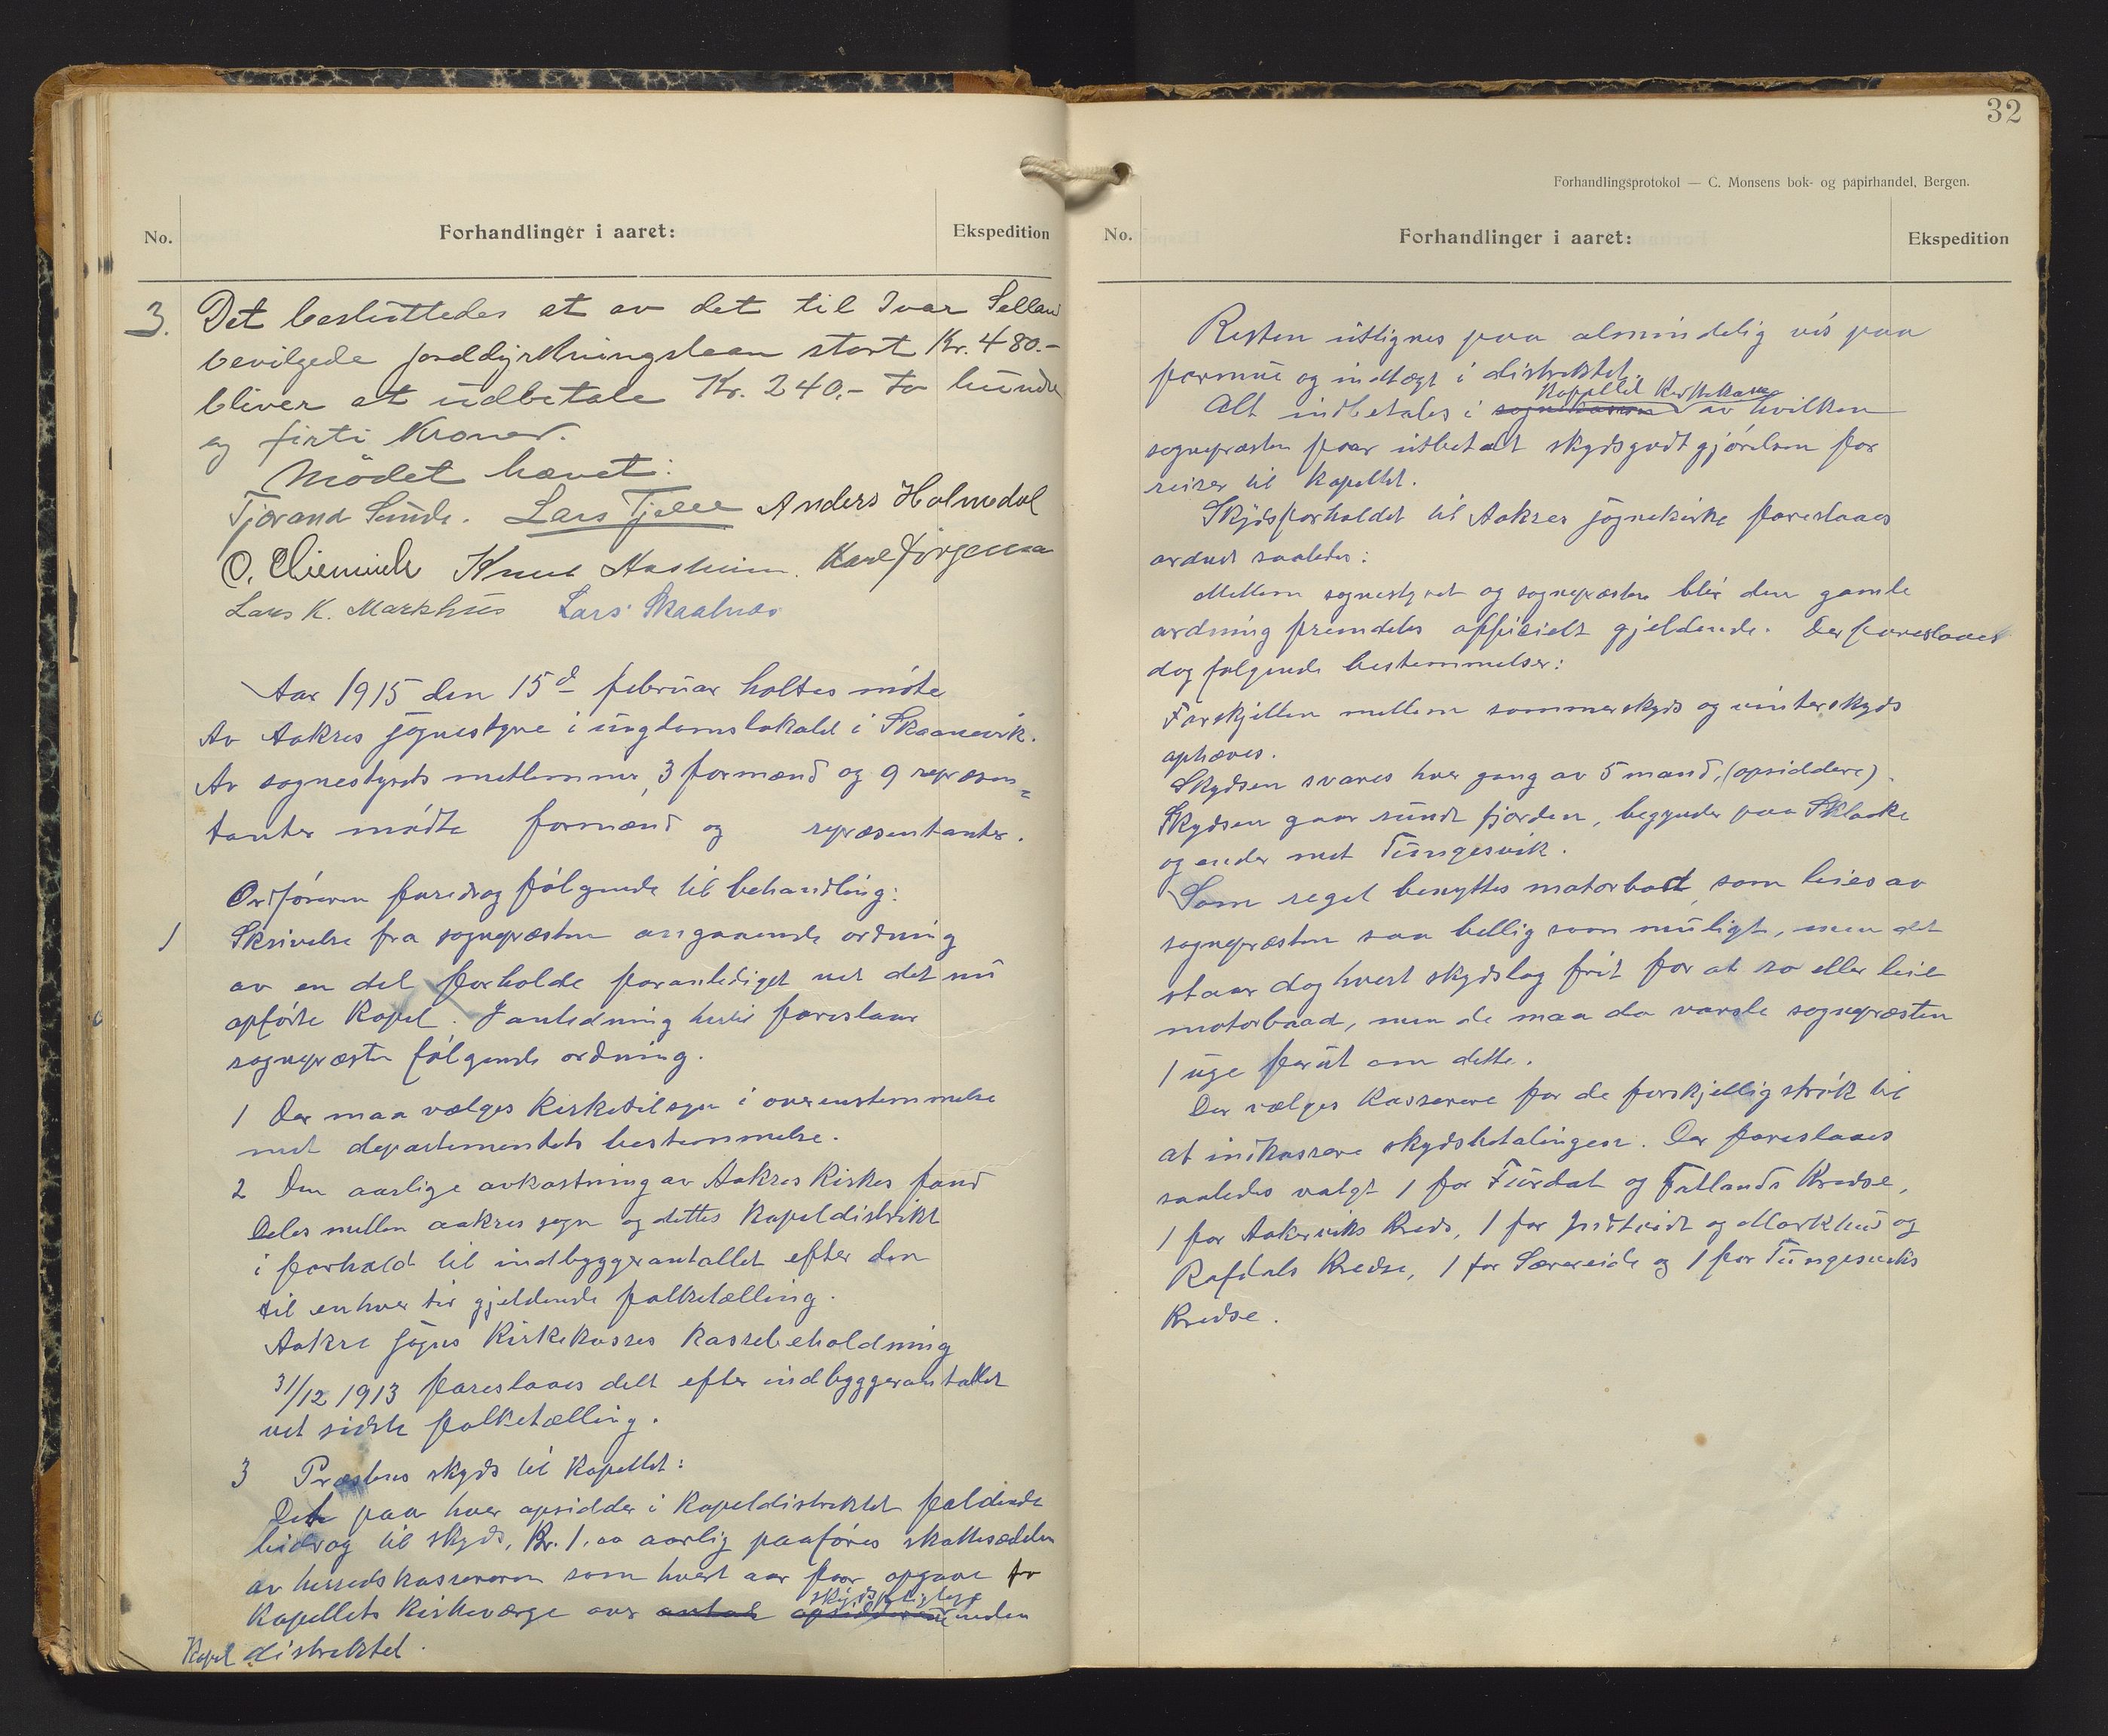 No.
Forhandlinger i aaret:
Ekspedition
3. Det besluttedes at av det til Ivar Selland
bevilgede jorddyrkningslaan stort Kr. 480.-
bliver at udbetale Kr. 240.- to hundr
og firti Kroner.
Mødet hævet:
Tjørand Sunde. Lars Tjelle Anders Holmedal
O. Knut Aasheim. Karl Jörgensen
Lars K. Markhus Lars Skaalnæs
Aar 1915 den 15d februar holtes møte
Av Aakres sognestyre i ungdomslokalet i Skaanevik.
Av sognestyrets metlemmer, 3 formænd og 9 repræsen=
tanter mødte formænd og repræsentanter.
Ordføreren foredrog følgende til behandling:
1 Skrivelse fra sognepræsten angaaende ordning
av en del forholde foranlediget ved det nu
opførte Kapel. I anledning herav foreslaar
sognepræsten følgende ordning.
1 Der maa vælges Kirketilsyn i overenstemmelse
med departementets bestemmelse.
2 Den aarlige avkastning av Aakres Kirkes fond
Deles mellem aakres sogn og dettes Kapeldistrikt
i forhold til indbyggerantallet efter den
til enhver tid gjeldende folketælling.
Aakre sogns Kirkekasses kassebeholdning
31/12 1913 foreslaaes delt efter indbyggerantallet
ved sidste folketælling.
3 Præstens skyds til Kapellet:
Det paa hver opsidder i Kapeldistriktet faldende
bidrag til skyds, Kr. 1.00 aarlig paaføres skattesedelen
av herredskassereren som hvert aar faar opgave fr
skydspligtige
Kapellets Kirkeværge over antal opsidderne inden
Kapel distriktet.
32
Forhandlingsprotokol — C. Monsens bok- og papirhandel, Bergen.
No.
Forhandlinger i aaret:
Ekspedition
Resten utlignes paa almindelig vis paa
formue og indtægt i distriktet.
Kapellet Kirkekasse
Alt indbetales i sognekassen av hvilken
sognepræsten faar utbetalt skydsgodtgjørelsen for
reiser til Kapellet.
Skydsforholdet til Aakres sognekirke foreslaaes
ordnet saaledes:
Mellem sognestyret og sognepræsten blir den gamle
ordning fremdeles officielt gjeldende. Der foreslaaes
dog følgende bestemmelser:
Forskjellen mellem sommerskyds og vinterskyds
ophæves.
Skydsen svares hver gang av 5 mand, (opsiddere).
Skydsen gaar rundt fjorden, begynder paa Sklaake
og ender med Tungesvik.
Som regel benyttes motorbaat, som leies av
sognepræsten saa billig som muligt, men det
staar dog hvert skydslag frit for at ro eller leie
motorbaad, men de maa da varsle sognepræsten
1 uge forut om dette.
Der vælges Kasserere for de forskjellig strøk til
at inkassere skydsbetalingen. Der foreslaaes
saaledes valgt 1 for Furdal og Fatlands Kredse,
1 for Aakerviks Kreds, 1 for og Markhus og
Rafdals Kredse, 1 for Særereide og 1 for Tungesviks
Kredse.